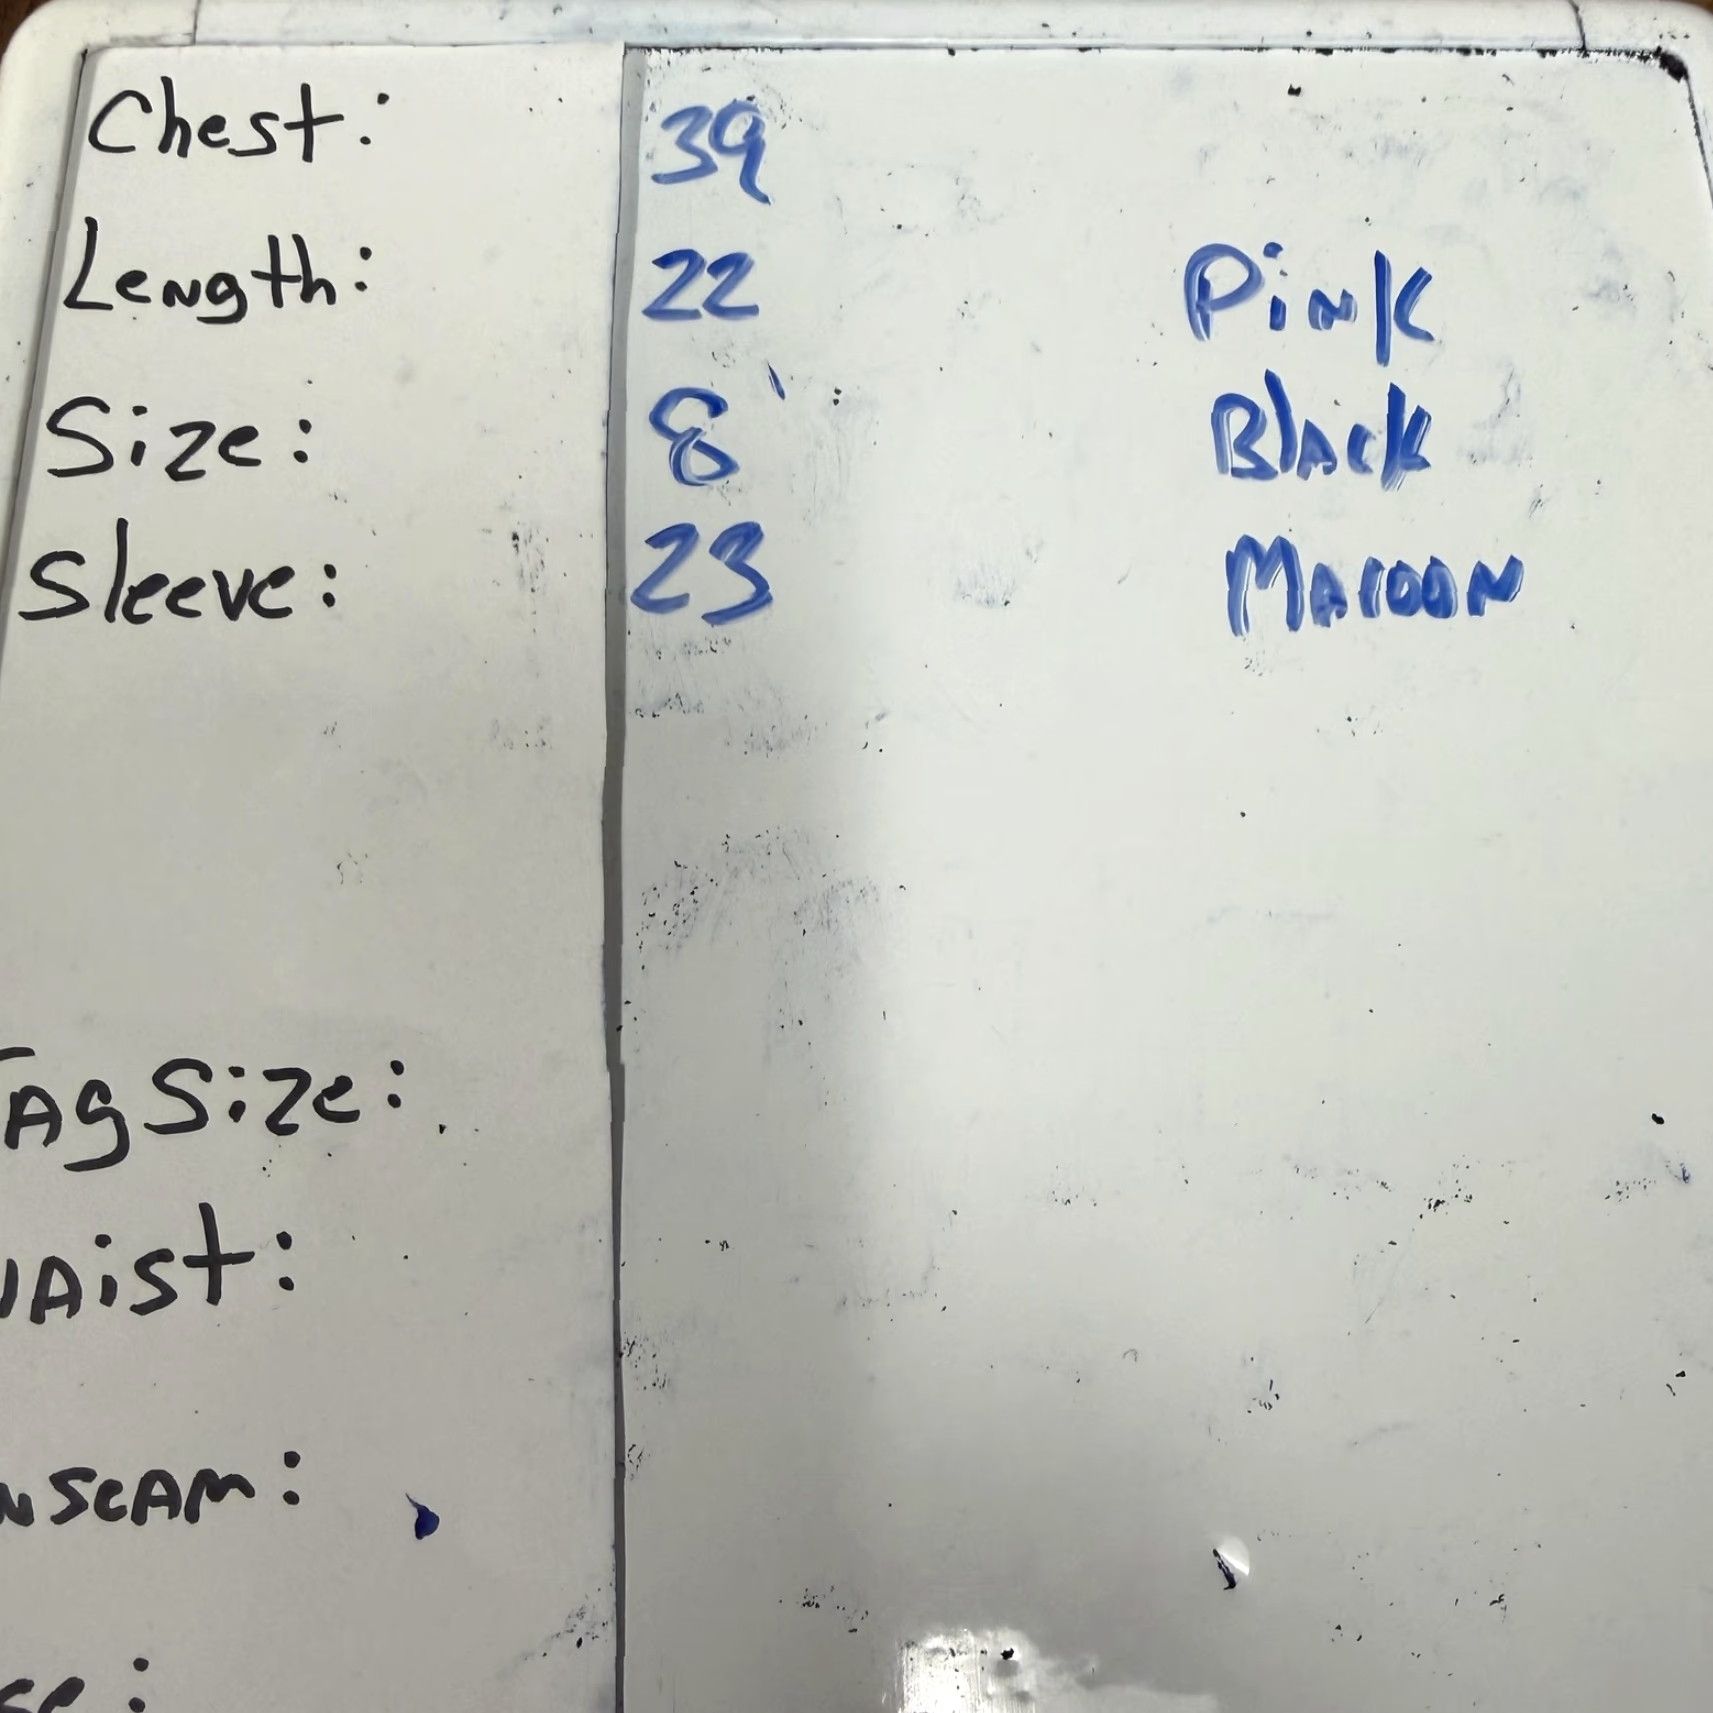 Chest: 39
Length: 22 Pink
Size: 8 Black
Sleeve: 23 Maroon
Tag Size:
Waist:
Inseam: